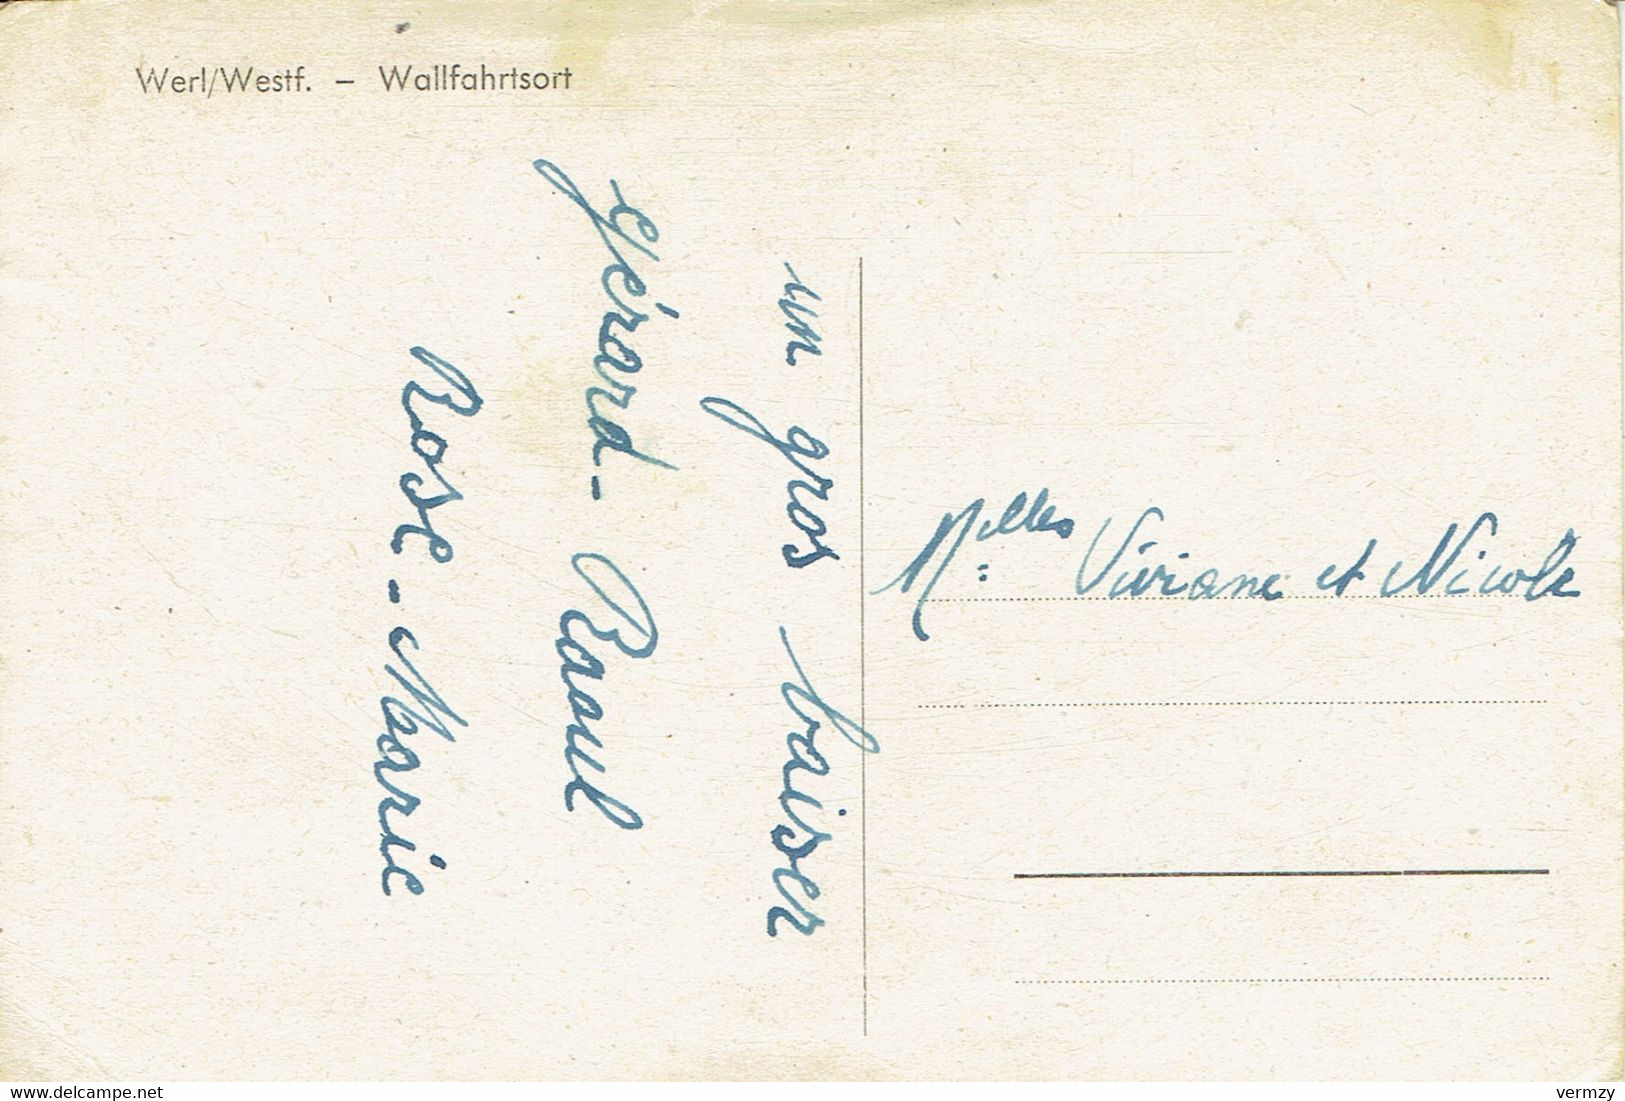 Werl/Westf. – Wallfahrtsort
un gros baiser
Gérard - Raoul
Rose - Marie
Melles Viviane et Nicole
www.delcampe.net
vermzy